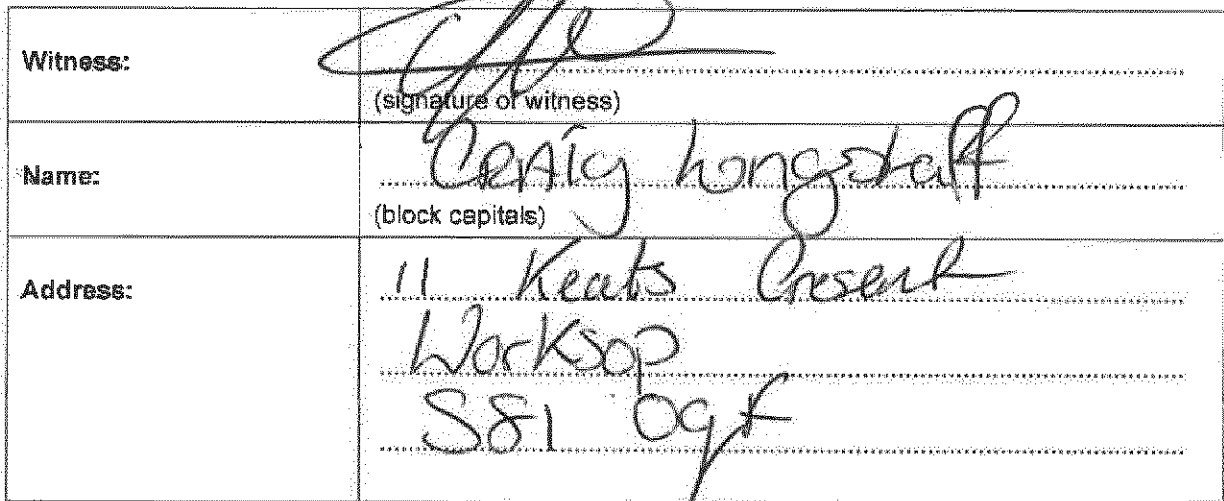 Witness:
(signature of witness)
Name: CRAig Longstaff
(block capitals)
Address: 11 Keats Cresent
Worksop
S81